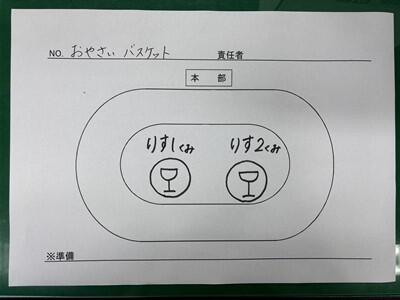 NO. おやさい バスケット 責任者
本 部
りす1くみ りす2くみ
※準備